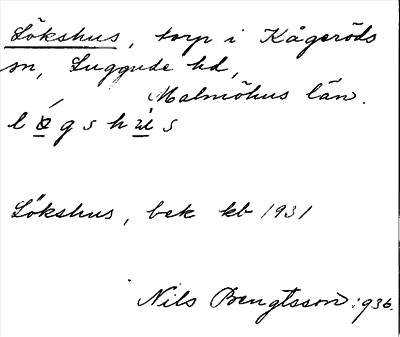 Lökshus, torp i Kågeröds
sn, Luggude hd,
Malmöhus län.
Lökshus, bek kb 1931
Nils Bengtsson 1936.